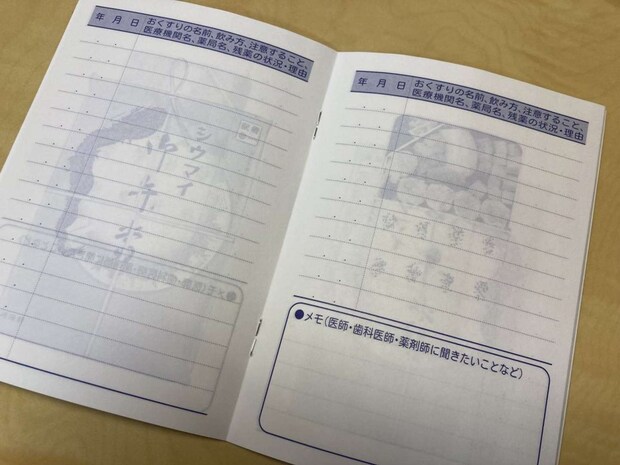 年 月 日
おくすりの名前、飲み方、注意すること、
医療機関名、薬局名、残薬の状況・理由
シウマイ
年 月 日
おくすりの名前、飲み方、注意すること、
医療機関名、薬局名、残薬の状況・理由
●メモ(医師・歯科医師・薬剤師に聞きたいことなど)